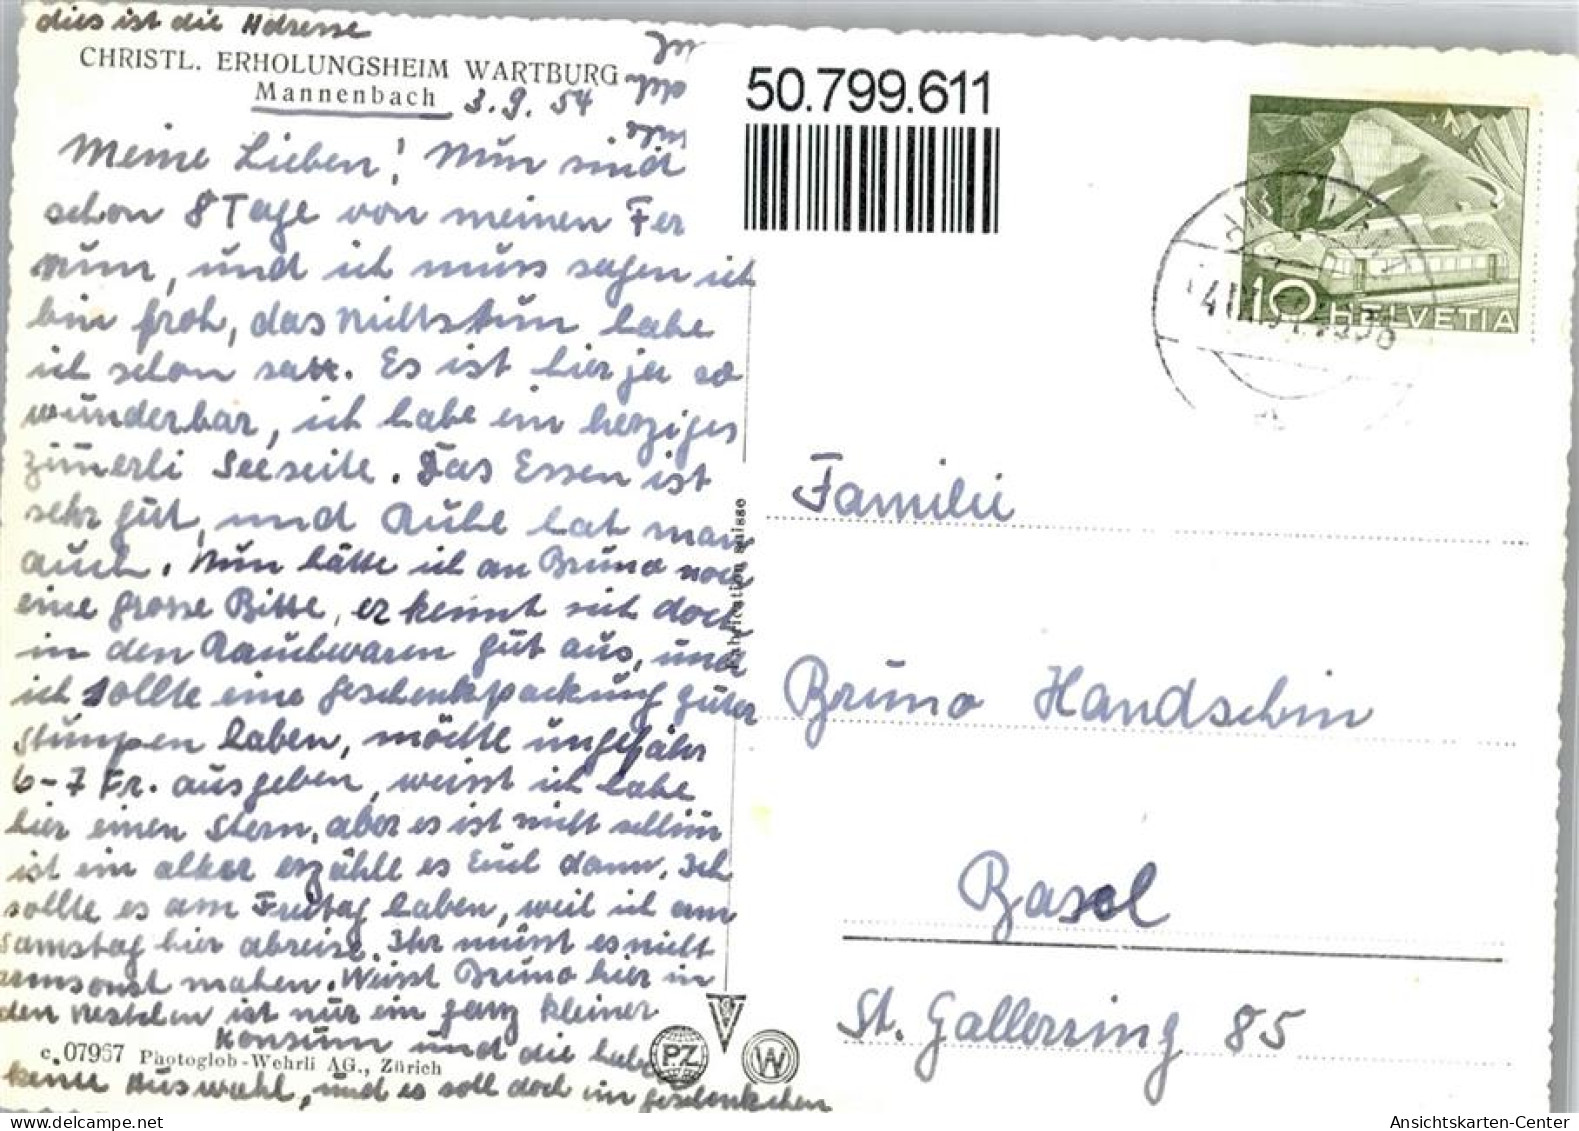 dies ist die Adresse
CHRISTL. ERHOLUNGSHEIM WARTBURG
Mannenbach 3.9.54
Meine Lieben! Nun sind
schon 8 Tage von meinen Fer
num, und ich muss sagen ich
bin froh, das nichtstun habe
ich schon satt. Es ist hier ja so
wunderbar, ich habe ein herziges
zimerli Seeseite. Das Essen ist
sehr gut, und Ruhe hat man
auch. Nun hätte ich an Bruno noch
eine grosse Bitte, er kennt sich doch
in den Rauchwaren gut aus, und
ich sollte eine Geschenkpackung guter
Stumpen haben, möchte ungefähr
6-7 Fr. ausgeben, weisst ich habe
hier einen Stern, aber es ist nicht schlim
ist ein alter erzähle es Euch dann. Ich
sollte es am Freitag haben, weil ich am
Samstag hier abreise. Ihr müsst es nicht
umsonst machen. Weisst Bruno hier in
den ist nur ein ganz kleiner
Konsum und die haben
keine Auswahl, und es soll doch ein geschenkchen
c. 07967 Photoglob-Wehrli AG., Zürich
Fabrication suisse
P.Z.
W
50.799.611
10 HELVETIA
Familie
Bruno Handschin
Basel
St. Gallerring 85
Ansichtskarten-Center